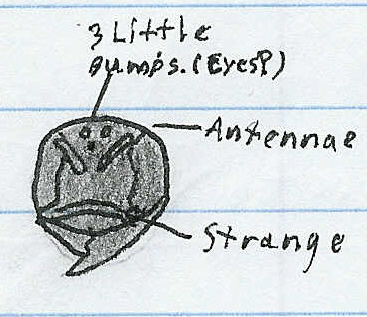 3 Little
Bumps. (Eyes?)
Antennae
Strange